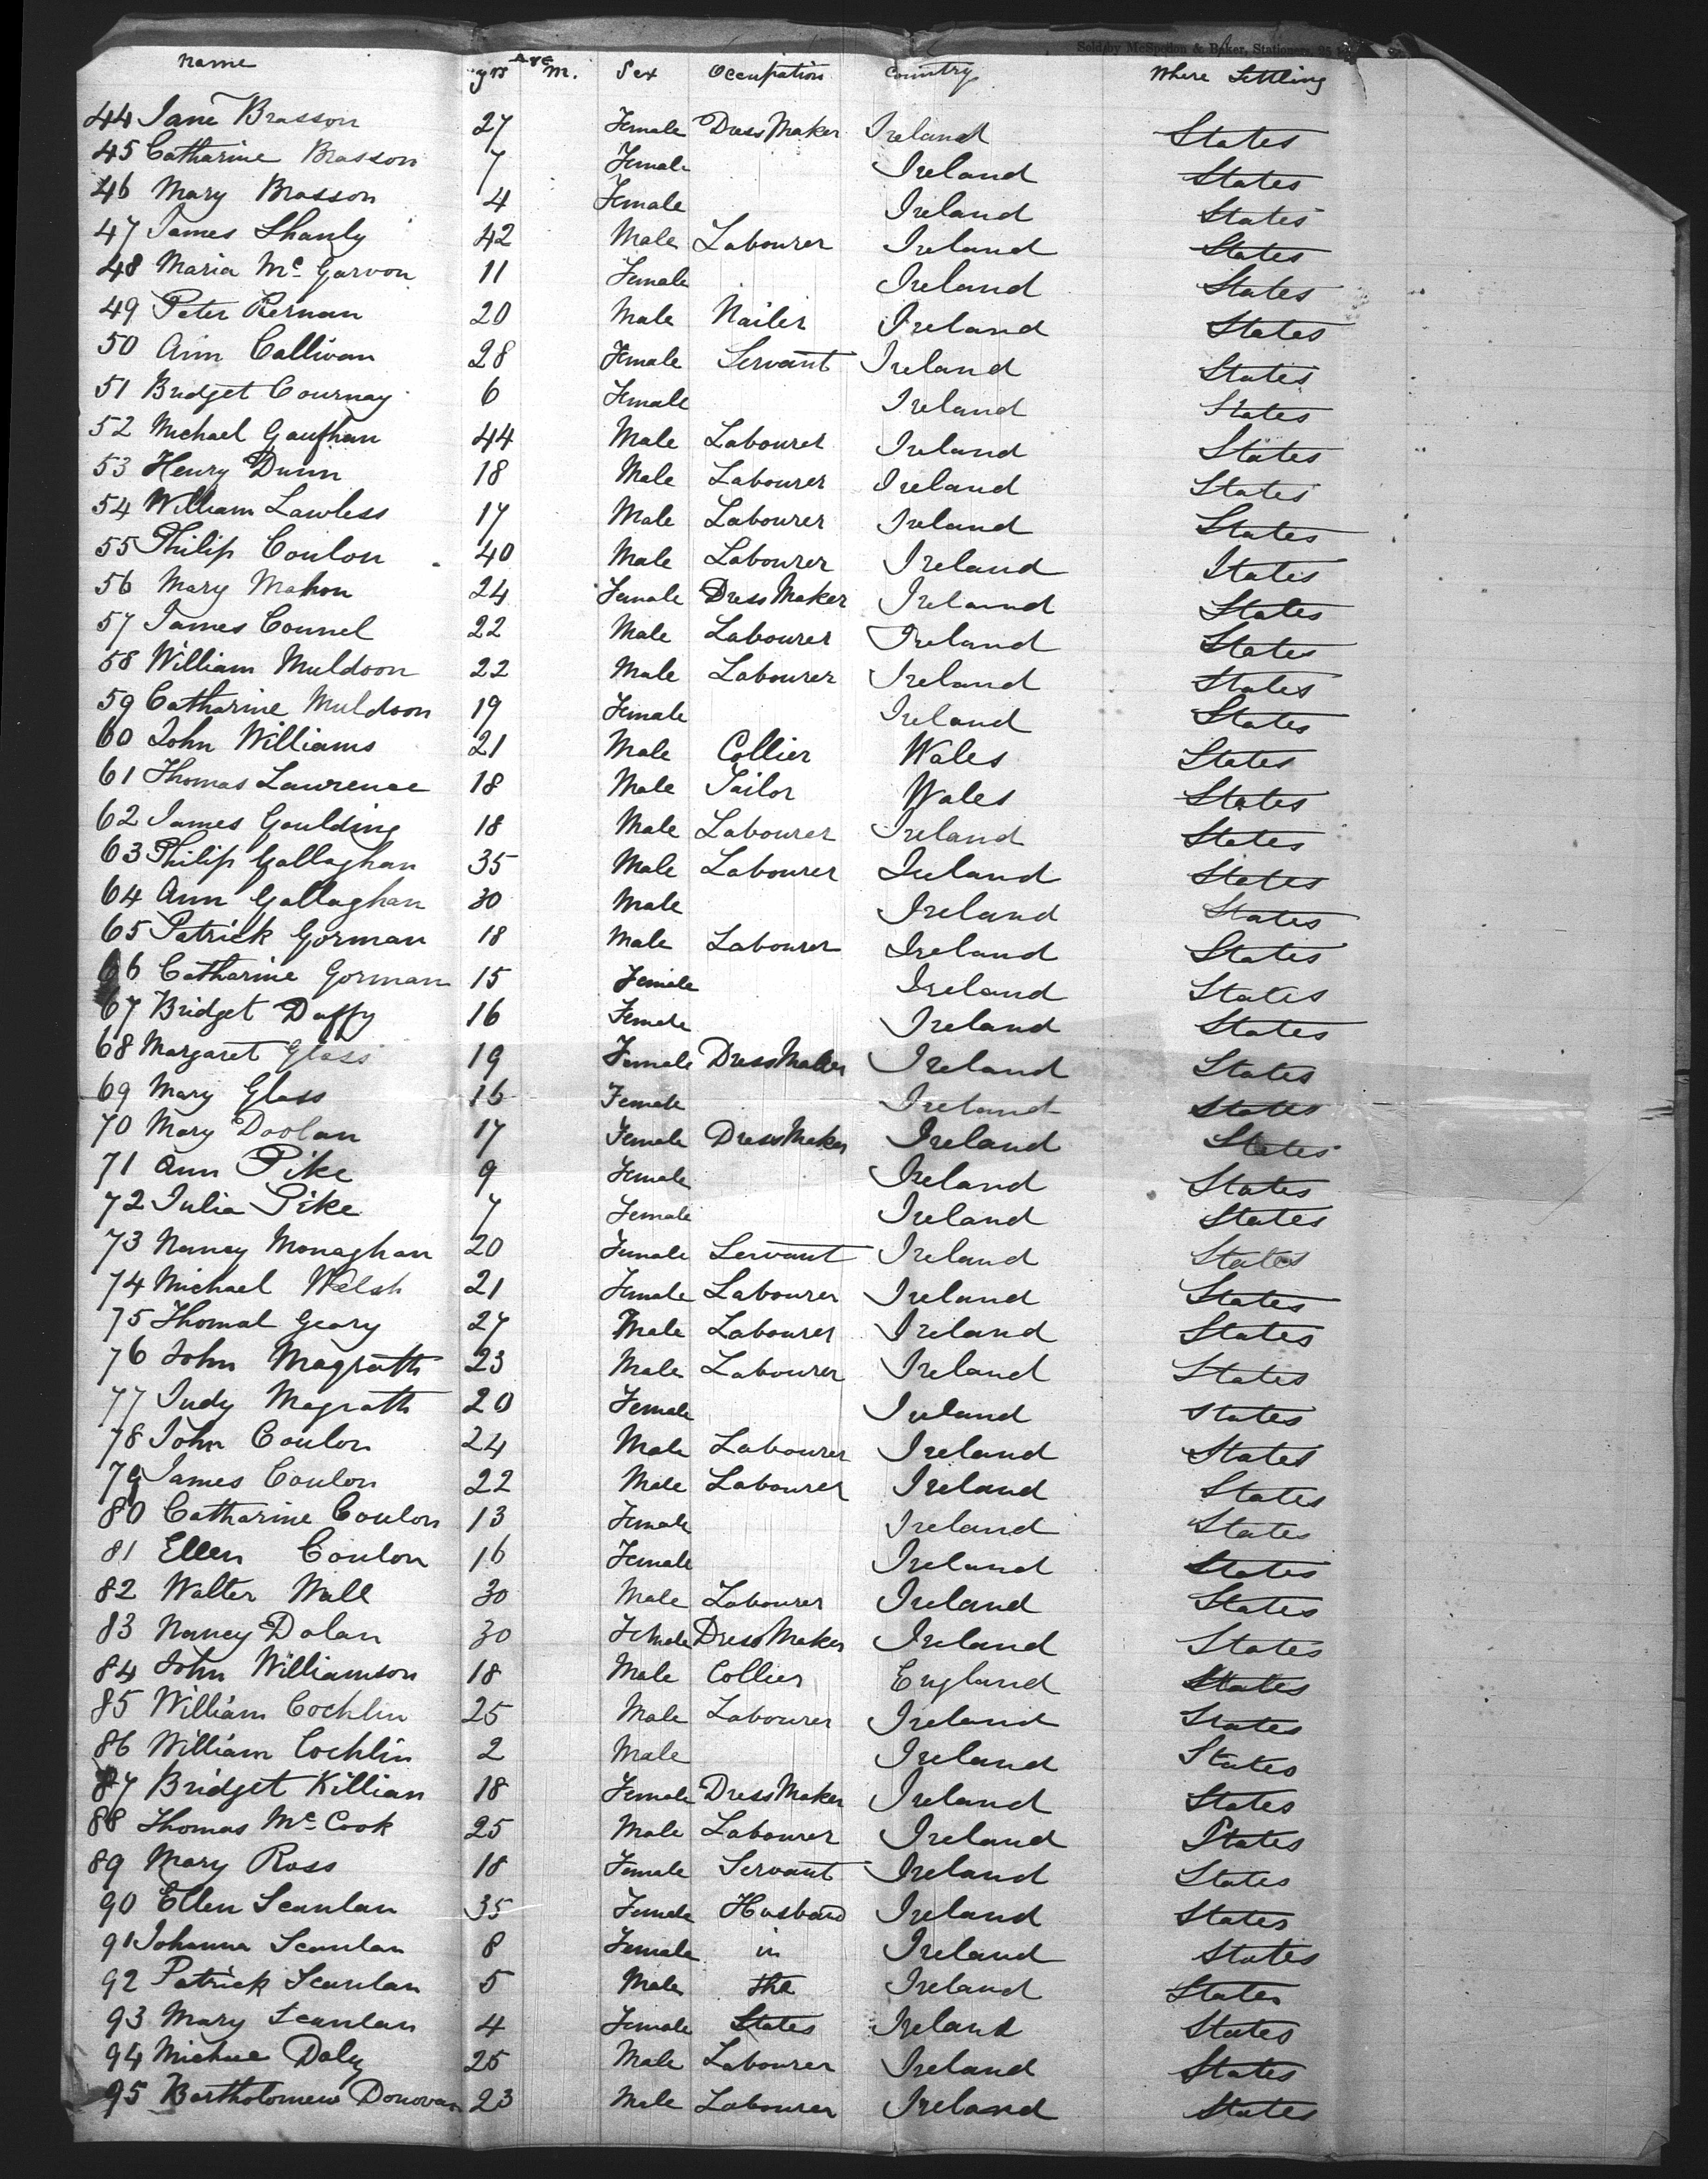 Sold by McSpedon & Baker, Stationers, 25
Name Age yrs m. Sex Occupation Country Where Settling
44 Jane Brasson 27 Female Dress Maker Ireland States
45 Catharine Brasson 7 Female Ireland States
46 Mary Brasson 4 Female Ireland States
47 James Shanly 42 Male Labourer Ireland States
48 Maria Mc Garvon 11 Female Ireland States
49 Peter Kernan 20 Male Nailer Ireland States
50 Ann Callivan 28 Female Servant Ireland States
51 Bridget Cournay 6 Female Ireland States
52 Michael Gaufhan 44 Male Labourer Ireland States
53 Henry Dunn 18 Male Labourer Ireland States
54 William Lawless 17 Male Labourer Ireland States
55 Philip Conlon 40 Male Labourer Ireland States
56 Mary Mahon 24 Female Dress Maker Ireland States
57 James Connel 22 Male Labourer Ireland States
58 William Muldoon 22 Male Labourer Ireland States
59 Catharine Muldoon 19 Female Ireland States
60 John Williams 21 Male Collier Wales States
61 Thomas Lawrence 18 Male Tailor Wales States
62 James Goulding 18 Male Labourer Ireland States
63 Philip Gallaghan 35 Male Labourer Ireland States
64 Ann Gallaghan 30 Male Ireland States
65 Patrick Gorman 18 Male Labourer Ireland States
66 Catharine Gorman 15 Female Ireland States
67 Bridget Duffy 16 Female Ireland States
68 Margaret Glass 19 Female Dress Maker Ireland States
69 Mary Glass 16 Female Ireland States
70 Mary Doolan 17 Female Dress Maker Ireland States
71 Ann Pike 9 Female Ireland States
72 Julia Pike 7 Female Ireland States
73 Nancy Monaghan 20 Female Servant Ireland States
74 Michael Welsh 21 Female Labourer Ireland States
75 Thomal Geary 27 Male Labourer Ireland States
76 John Magrath 23 Male Labourer Ireland States
77 Judy Magrath 20 Female Ireland States
78 John Conlon 24 Male Labourer Ireland States
79 James Conlon 22 Male Labourer Ireland States
80 Catharine Conlon 13 Female Ireland States
81 Ellen Conlon 16 Female Ireland States
82 Walter Wall 30 Male Labourer Ireland States
83 Nancy Dolan 30 Female Dress Maker Ireland States
84 John Williamson 18 Male Collier England States
85 William Cochlin 25 Male Labourer Ireland States
86 William Cochlin 2 Male Ireland States
87 Bridget Killian 18 Female Dress Maker Ireland States
88 Thomas Mc Cook 25 Male Labourer Ireland States
89 Mary Ross 18 Female Servant Ireland States
90 Ellen Scanlan 35 Female Husband Ireland States
91 Johanna Scanlan 8 Female in Ireland States
92 Patrick Scanlan 5 Male the Ireland States
93 Mary Scanlan 4 Female States Ireland States
94 Michae Daly 25 Male Labourer Ireland States
95 Bartholomew Donovan 23 Male Labourer Ireland States